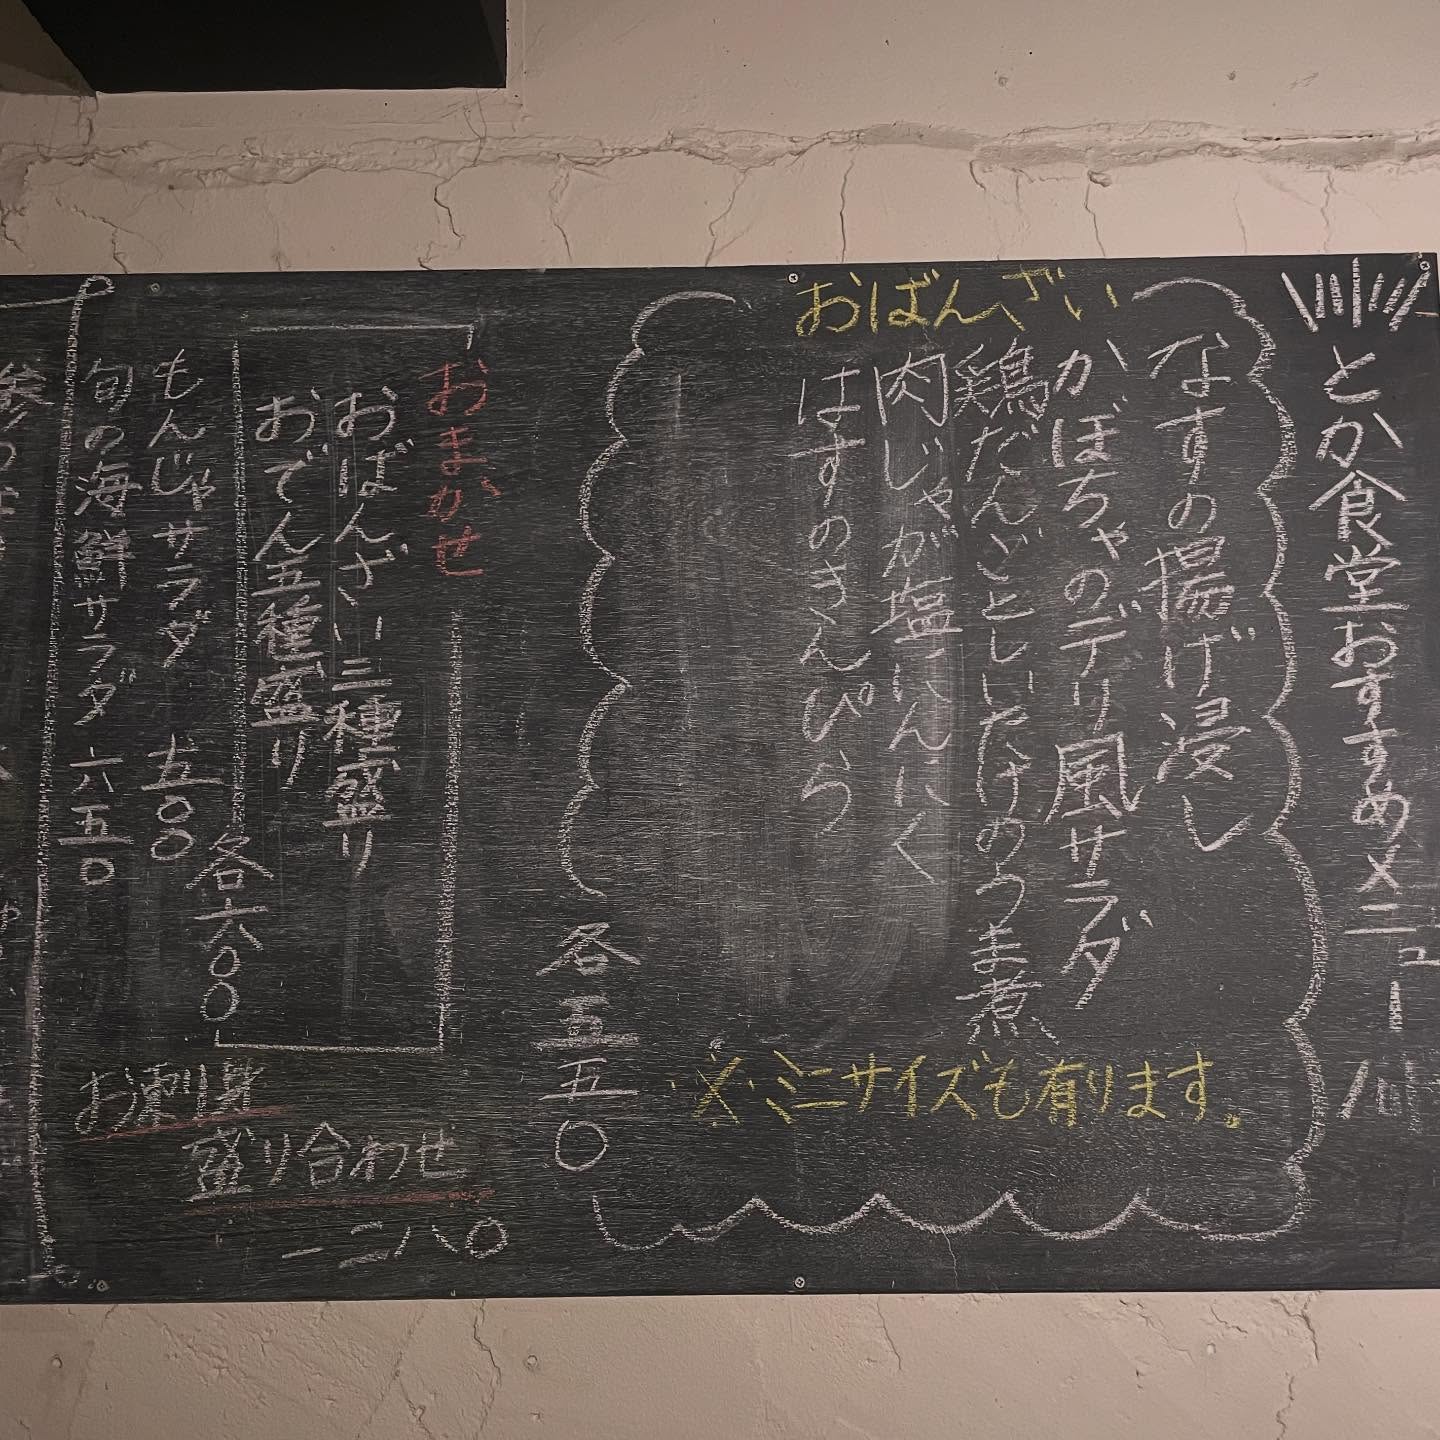 とか食堂おすすめメニュー
おばんざい
なすの揚げ浸し
かぼちゃのデリ風サラダ
鶏だんごとしいたけのうま煮
肉じゃが塩にんにく
はすのきんぴら
※ミニサイズも有ります。
各五五〇
おまかせ
おばんざい三種盛り
おでん五種盛り
各六〇〇
もんじゃサラダ 五〇〇
旬の海鮮サラダ 六五〇
お刺身
盛り合わせ
一二八〇